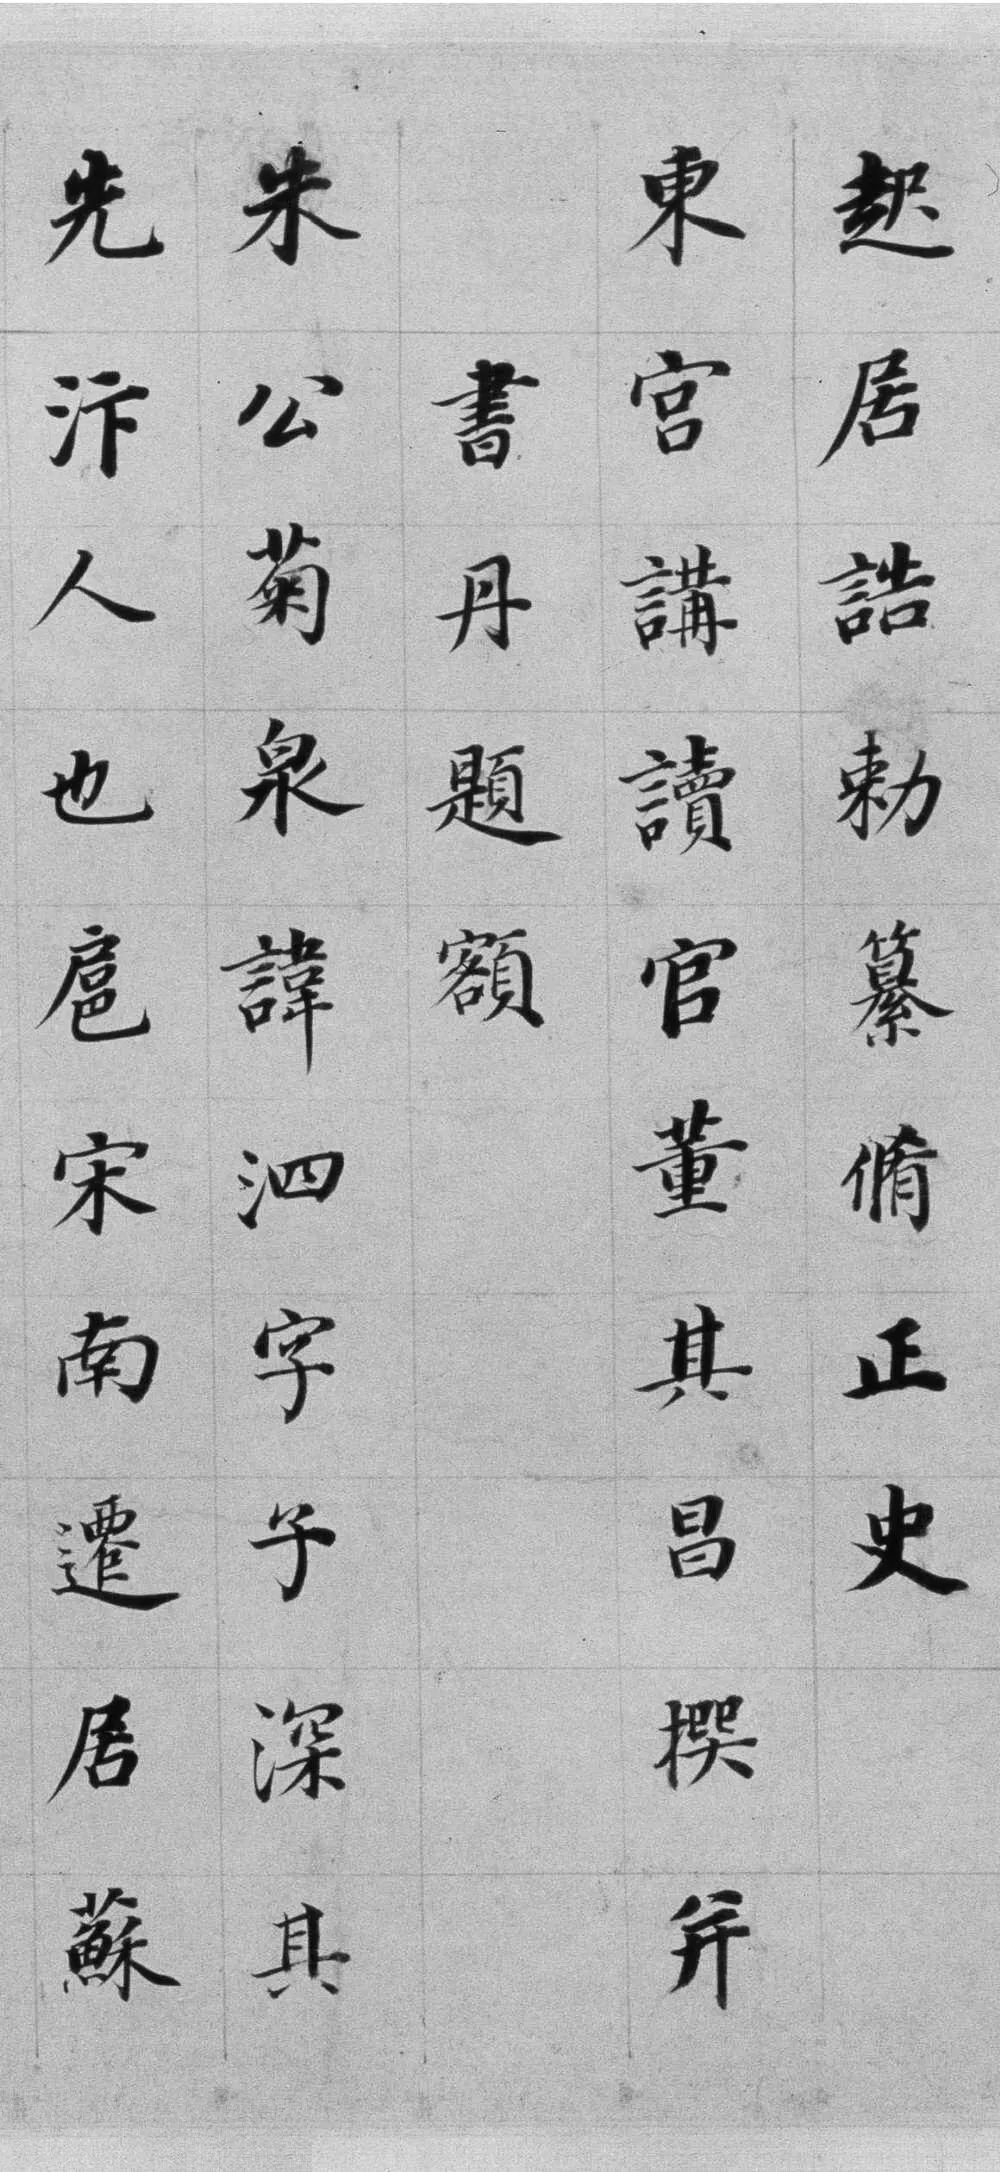 起居誥勅纂脩正史
東宮講讀官董其昌撰并
書丹題額
朱公菊泉諱泗字子深其
先汴人也扈宋南遷居蘇